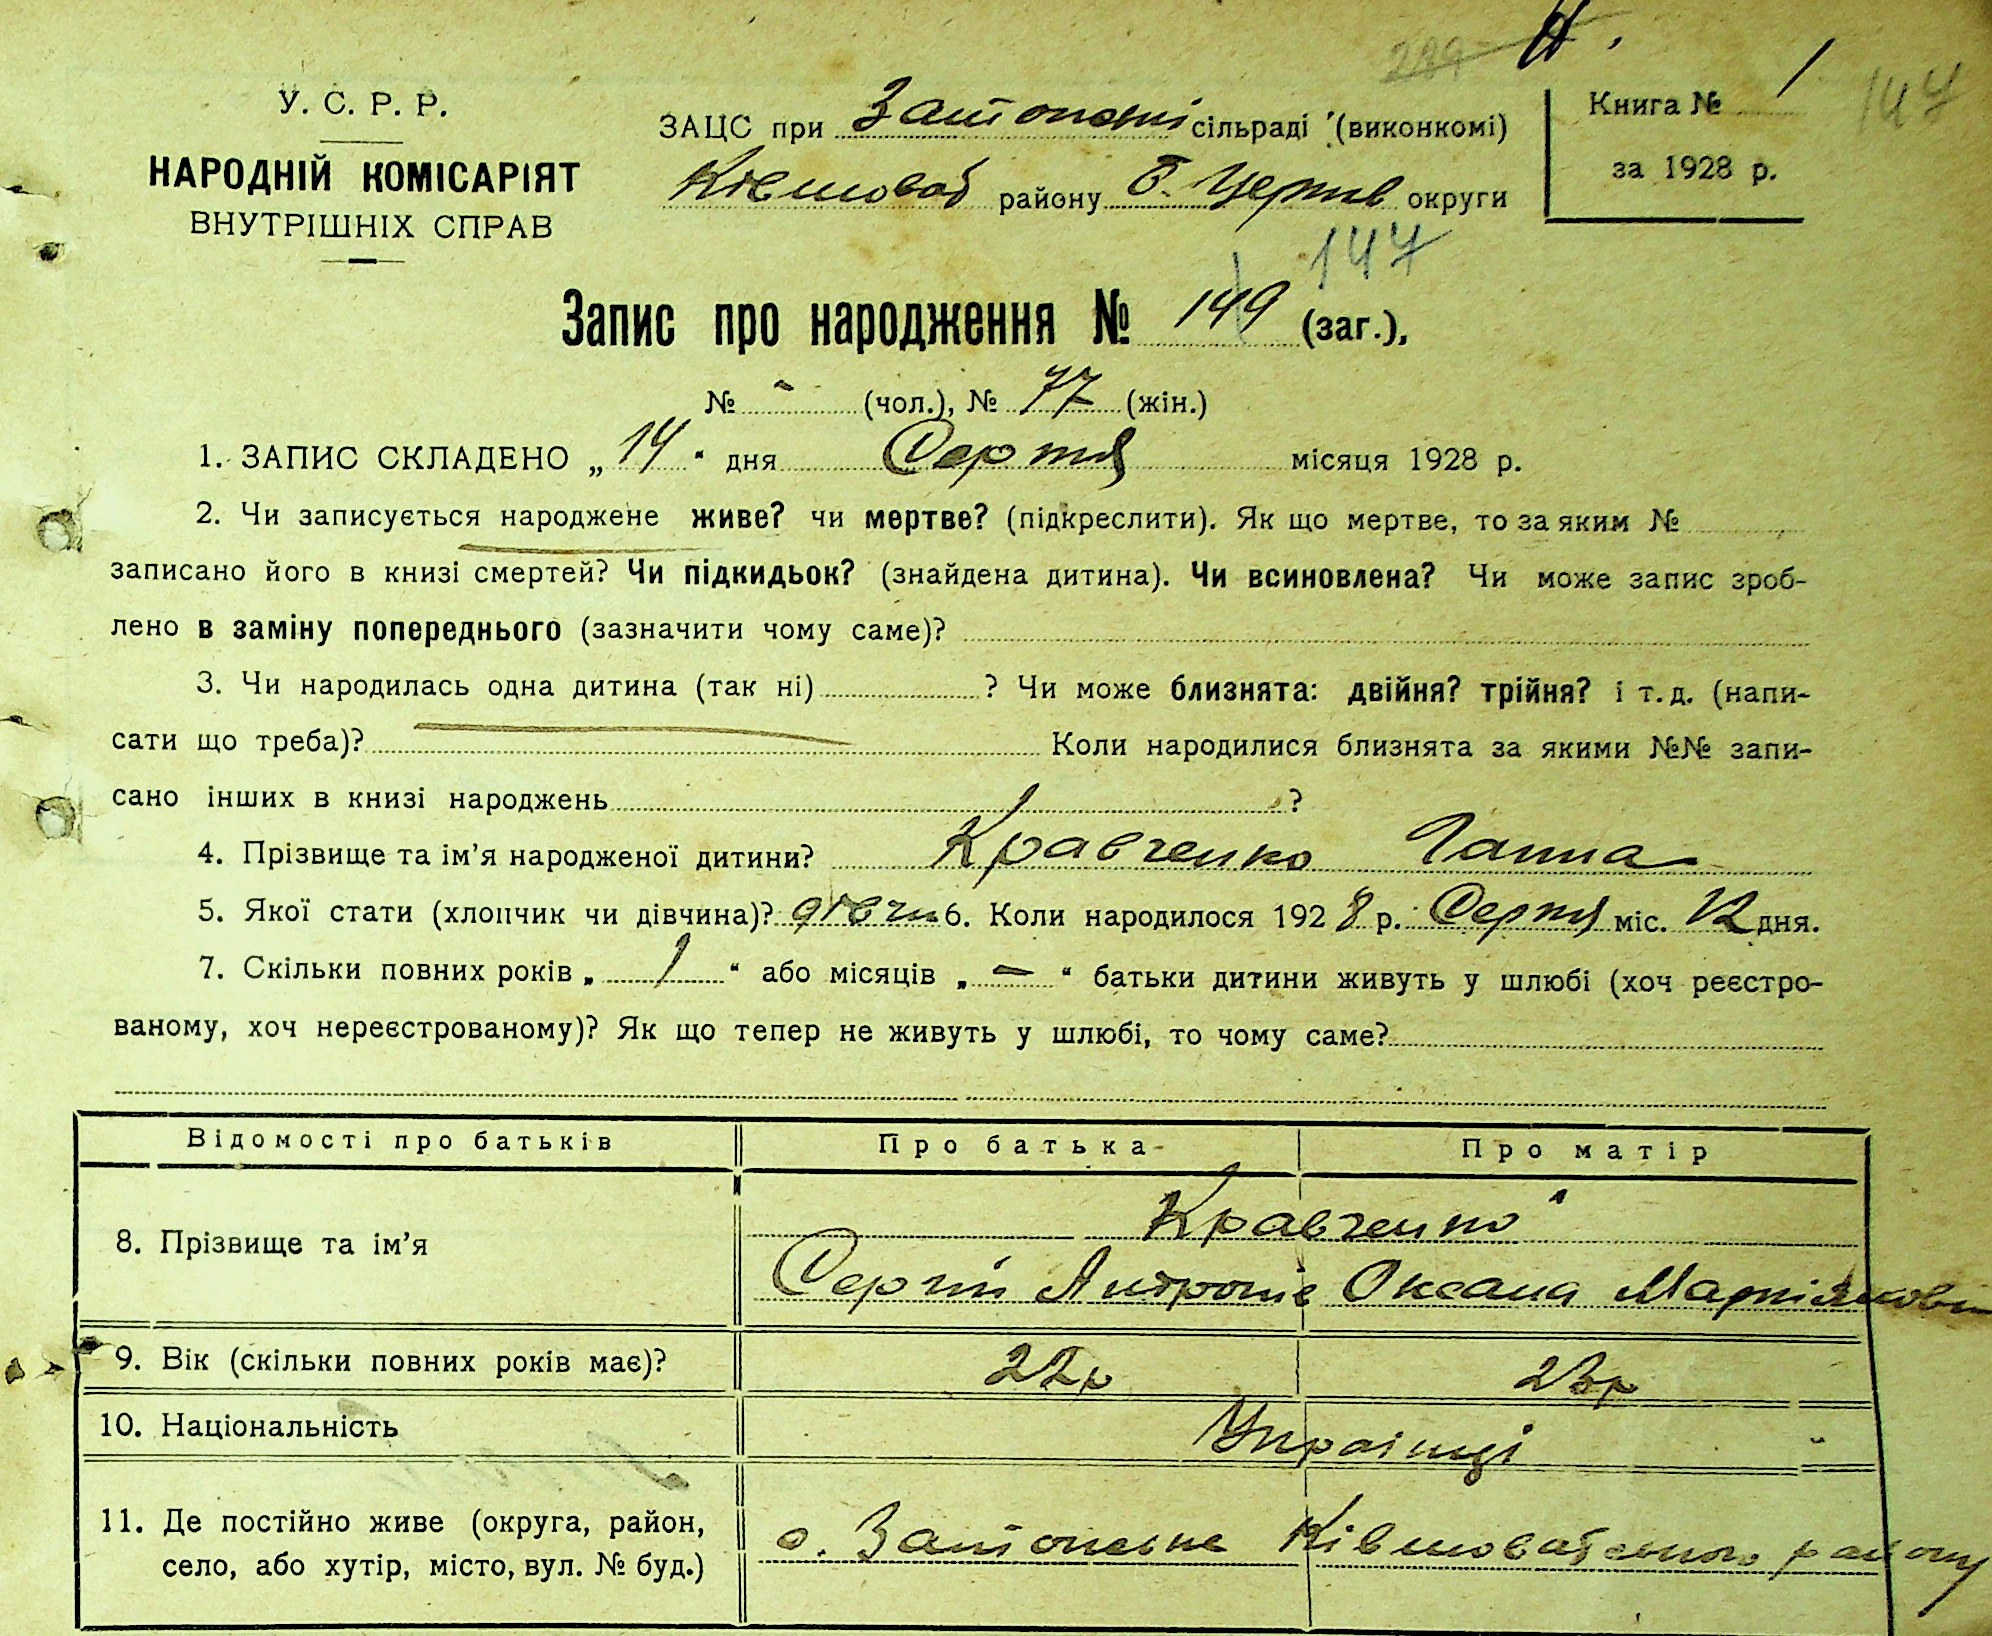 289 н.
У. С. Р. Р.
НАРОДНІЙ КОМІСАРІЯТ
ВНУТРІШНІХ СПРАВ
ЗАЦС при сільраді (виконкомі)
Ківшоват району Б. Церків округи
Книга № 1
за 1928 р.
147
147
Запис про народження № 149 (заг.),
№ - (чол.), № 77 (жін.)
1. ЗАПИС СКЛАДЕНО „ 14 " дня Серпня місяця 1928 р.
2. Чи записується народжене живе? чи мертве? (підкреслити). Як що мертве, то за яким №
записано його в книзі смертей? Чи підкидьок? (знайдена дитина). Чи всиновлена? Чи може запис зроб-
лено в заміну попереднього (зазначити чому саме)?
3. Чи народилась одна дитина (так ні) ? Чи може близнята: двійня? трійня? і т. д. (напи-
сати що треба)? Коли народилися близнята за якими №№ запи-
сано інших в книзі народжень ?
4. Прізвище та ім'я народженої дитини? Кравченко Ганна
5. Якої стати (хлопчик чи дівчина)? дівчин 6. Коли народилося 1928 р. Серпня міс. 12 дня.
7. Скільки повних років „ 1 " або місяців „ — " батьки дитини живуть у шлюбі (хоч реєстро-
ваному, хоч нереєстрованому)? Як що тепер не живуть у шлюбі, то чому саме?
Відомості про батьків Про батька Про матір
8. Прізвище та ім'я Кравченко
Сергій Оксана
9. Вік (скільки повних років має)? 22р 23р
10. Національність Українці
11. Де постійно живе (округа, район,
село, або хутір, місто, вул. № буд.)
с. Ківшоватського району